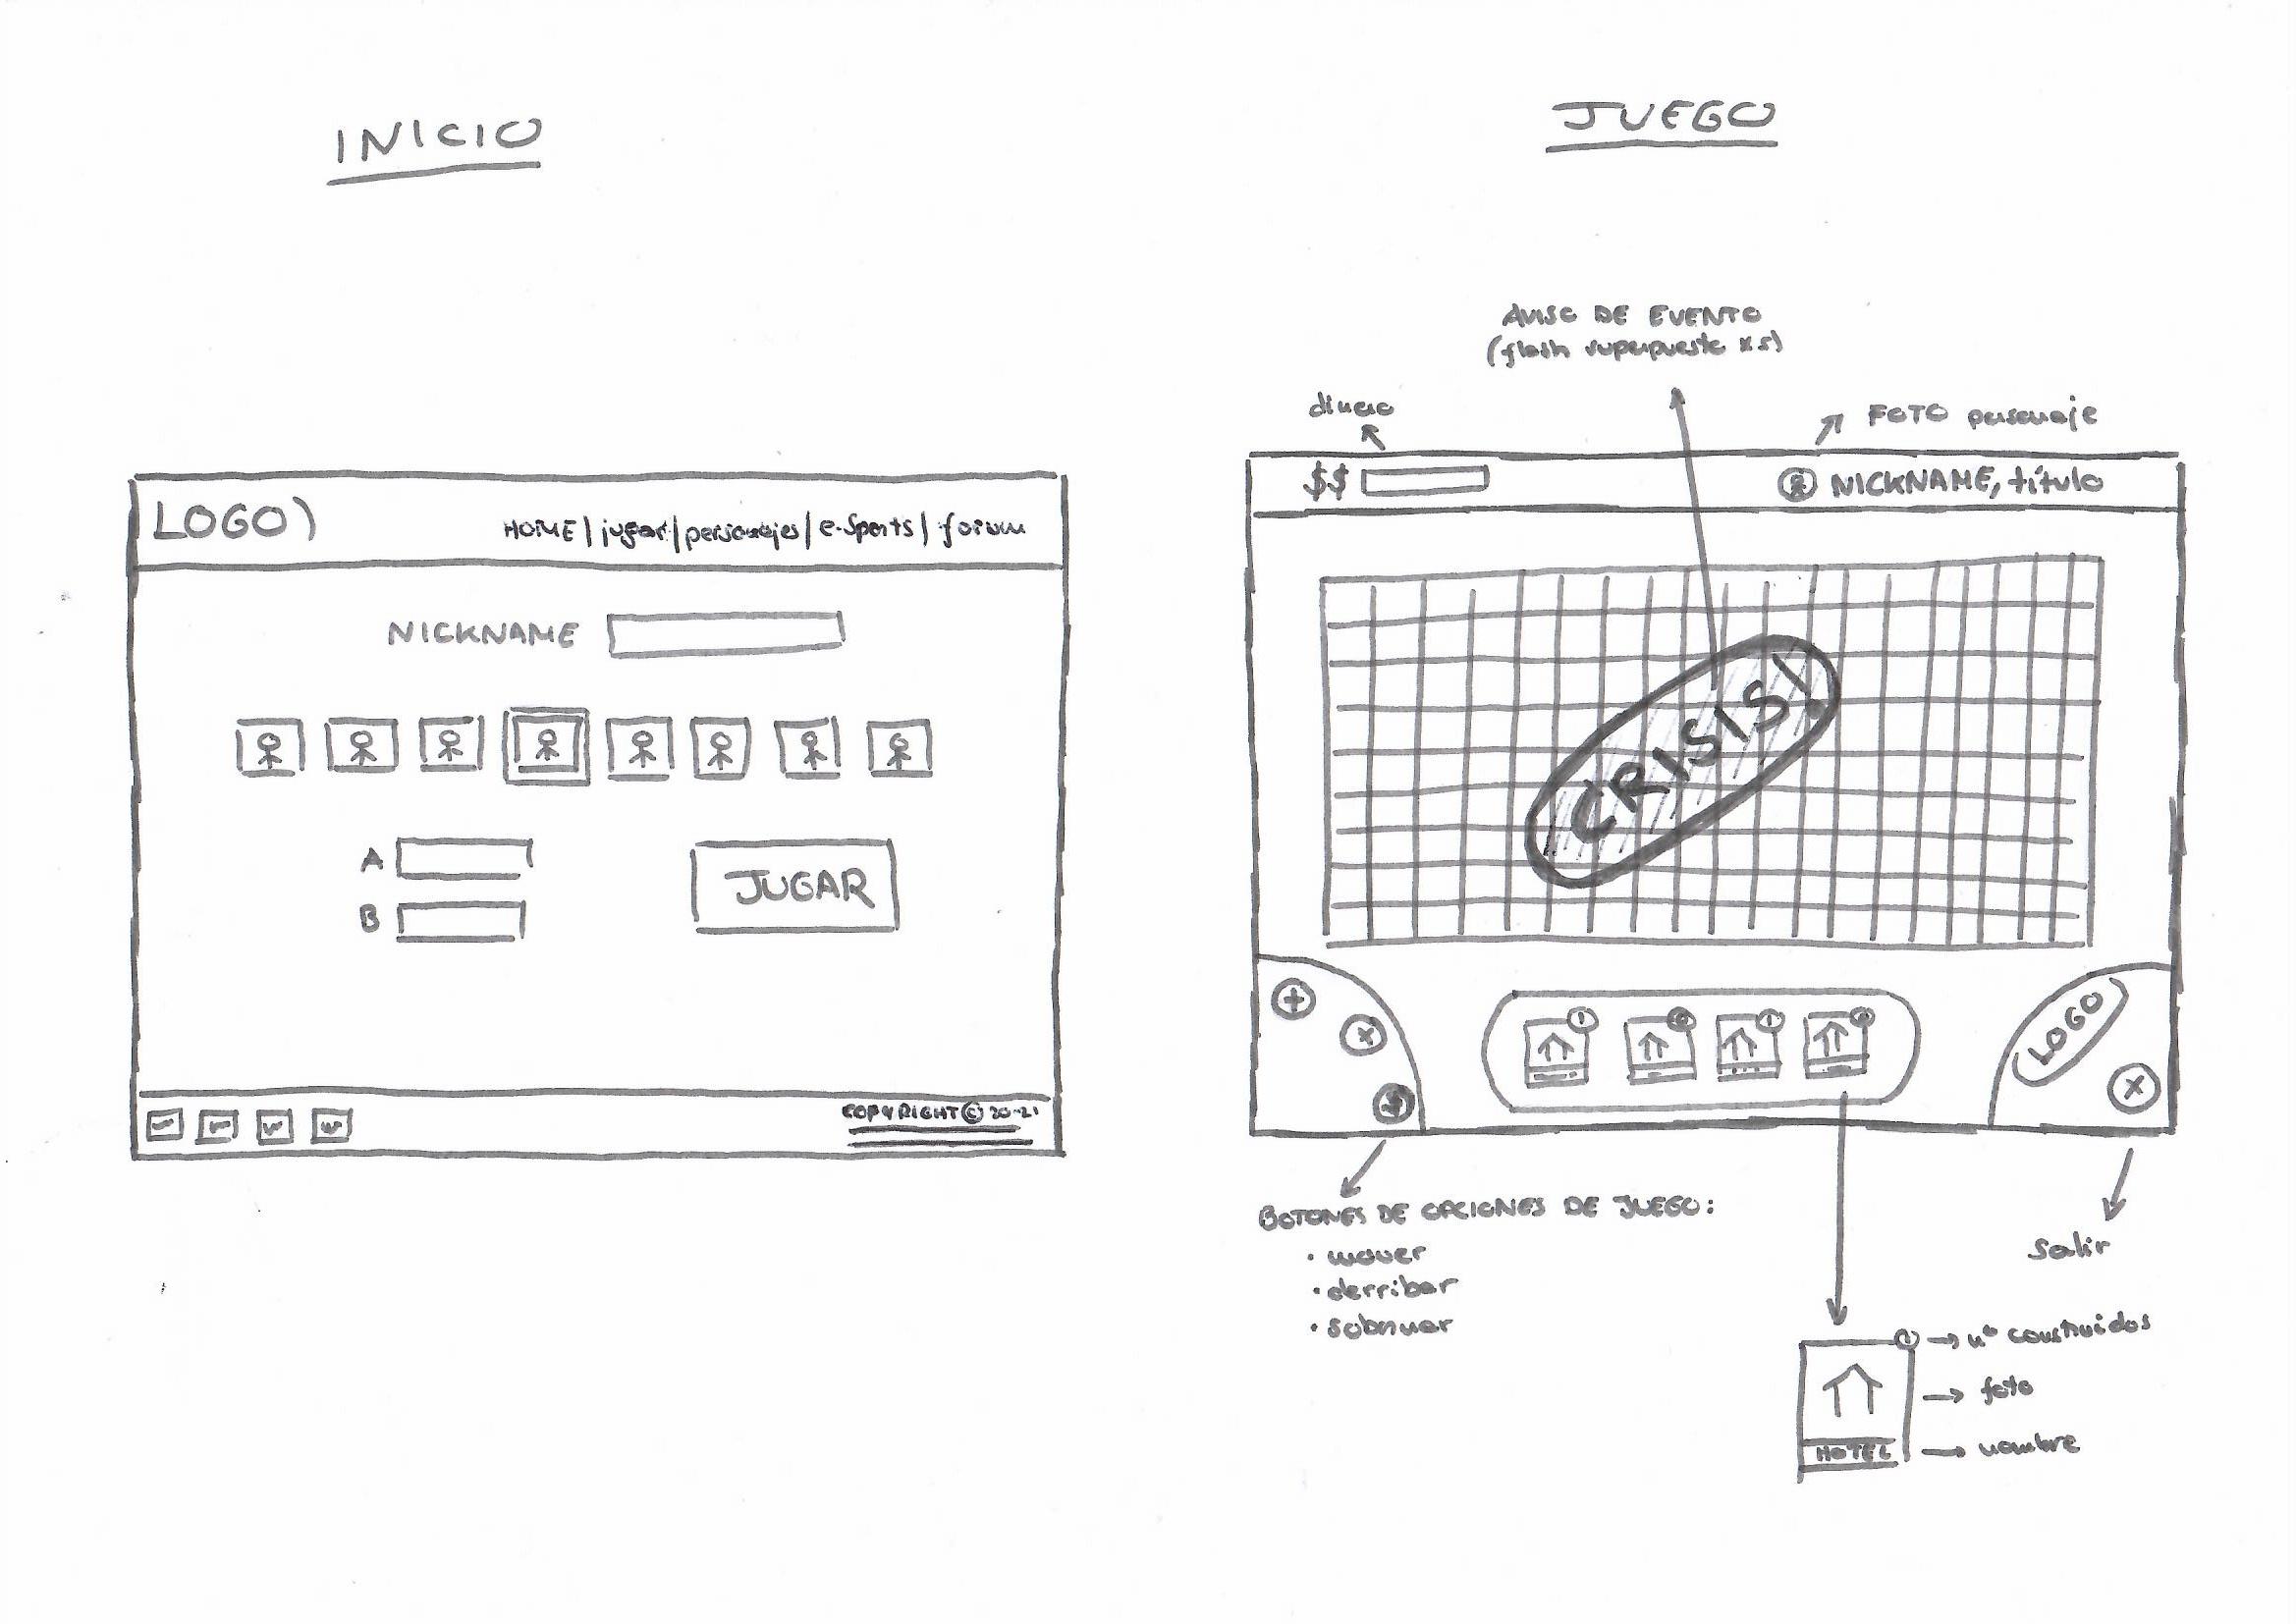 INICIO
LOGO)
HOME | jugar | personajes | e-Sports | forum
NICKNAME
A
B
JUGAR
COPYRIGHT © 20-21
JUEGO
AVISO DE EVENTO
(flash superpuesto x s)
dinero
FOTO personaje
$$
NICKNAME, título
CRISIS!
LOGO
BOTONES DE OPCIONES DE JUEGO:
· mover
· derribar
· sobornar
Salir
nº construidos
foto
HOTEL
nombre